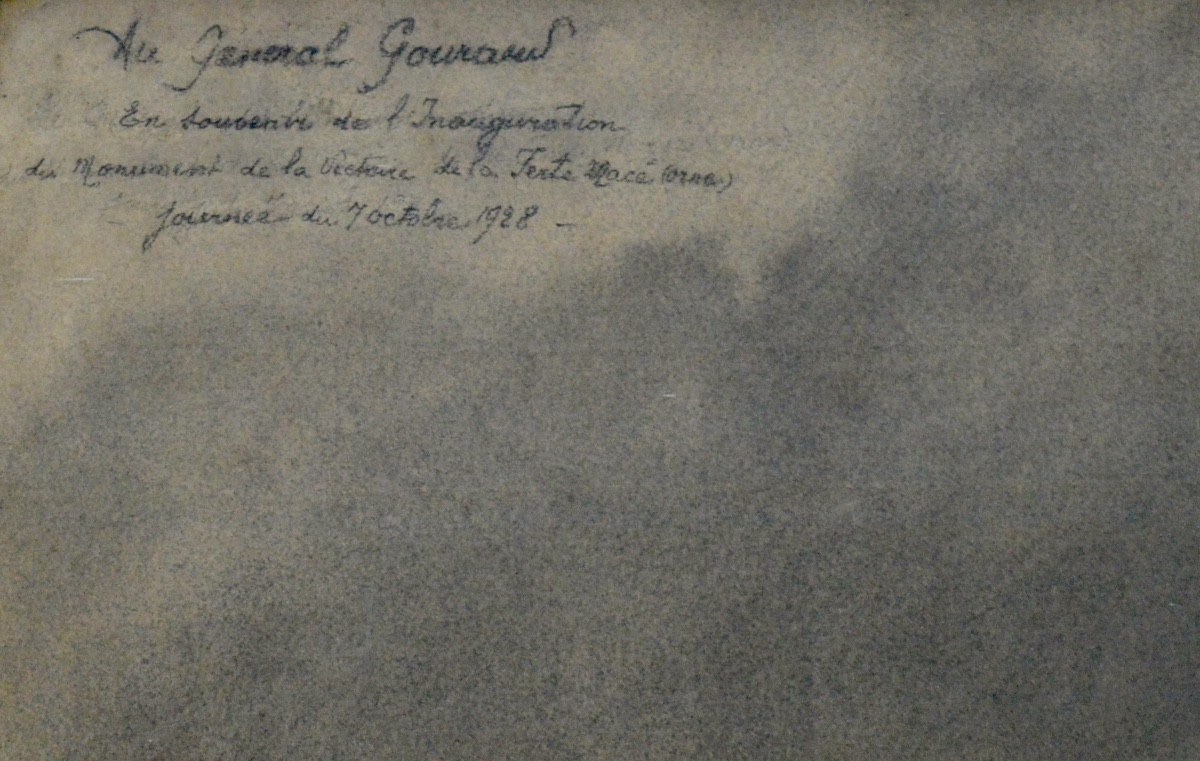 Au Général Gouraud
En souvenir de l'Inauguration
du Monument de la Victoire de la Ferté Macé (Orne)
journée du 7 octobre 1928 -